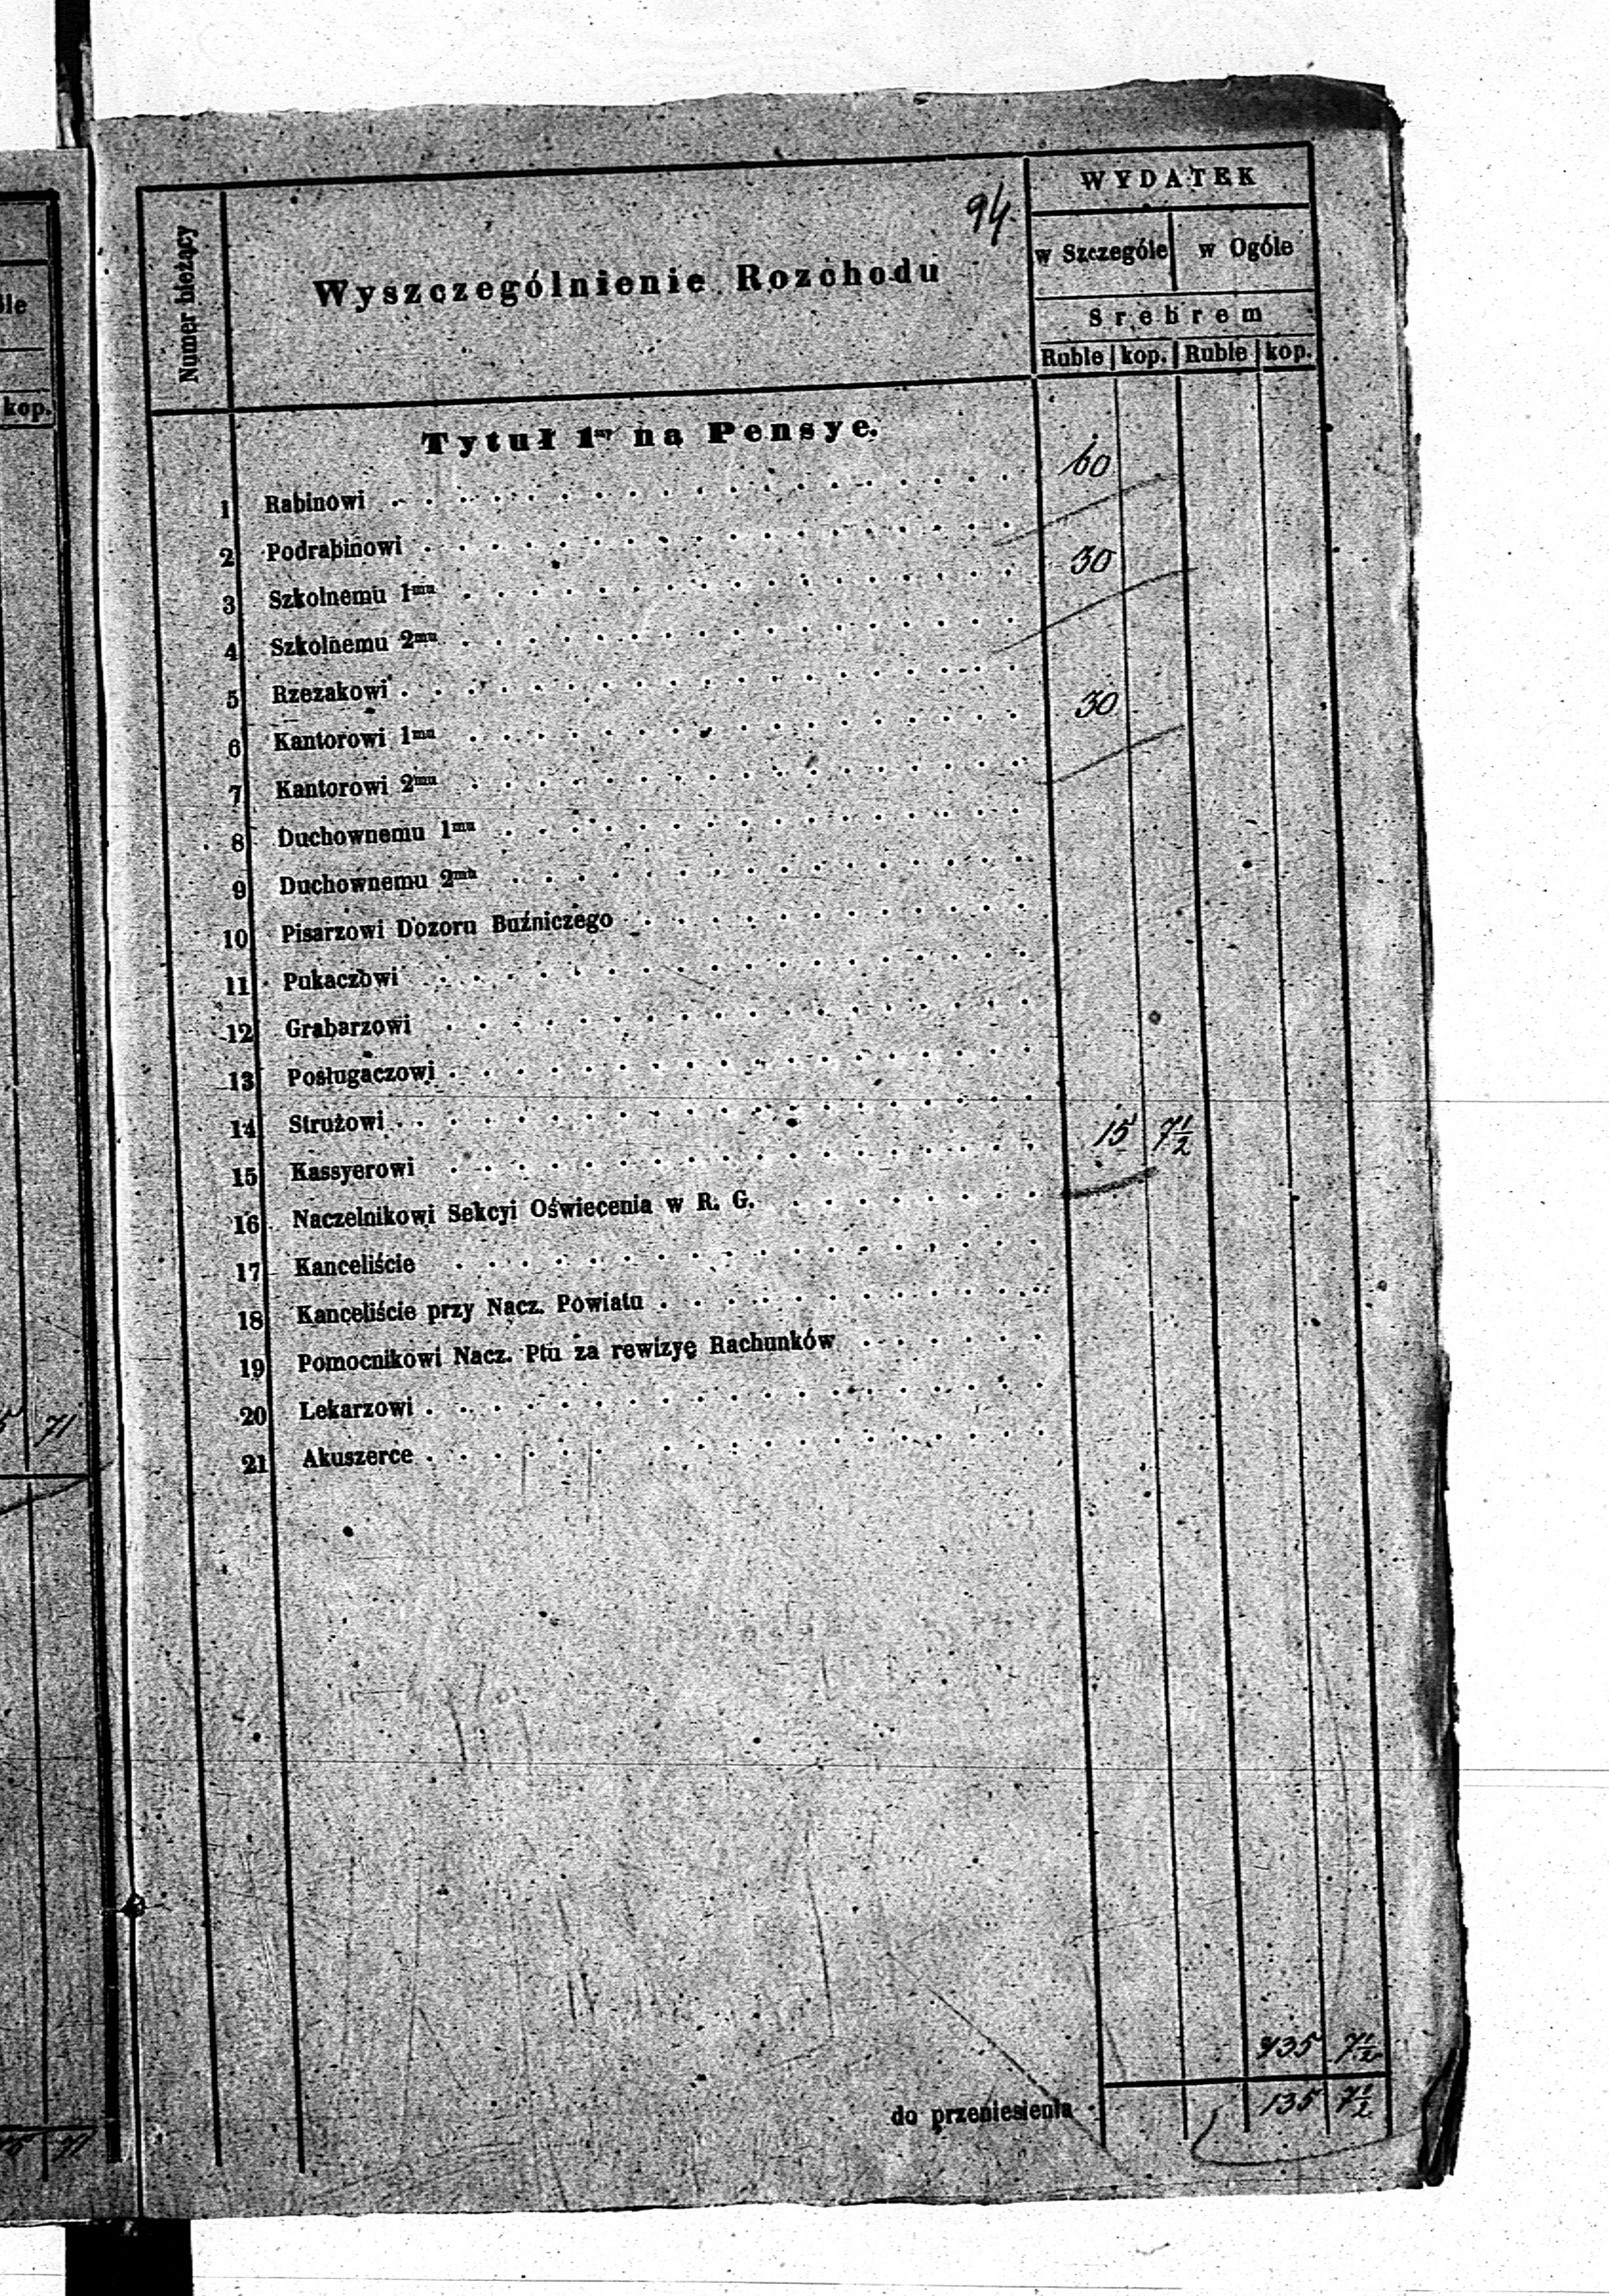 94.
WYDATEK
Numer bieżący
Wyszczególnienie Rozchodu
w Szczególe w Ogóle
Srebrem
Ruble kop. Ruble kop.
kop.
Tytuł 1ny na Pensye.
1 Rabinowi . . . . . 60
2 Podrabinowi . . . . .
3 Szkolnemu 1mu . . . . . 30
4 Szkolnemu 2mu . . . . .
5 Rzezakowi . . . . .
6 Kantorowi 1mu . . . . . 30
7 Kantorowi 2mu . . . . .
8 Duchownemu 1mu . . . . .
9 Duchownemu 2mu . . . . .
10 Pisarzowi Dozoru Buźniczego . . . . .
11 Pukaczowi . . . . .
12 Grabarzowi . . . . .
13 Posługaczowi . . . . .
14 Strużowi . . . . .
15 Kassyerowi . . . . . 15 7½
16 Naczelnikowi Sekcyi Oświecenia w R. G. . . . . .
17 Kanceliście . . . . .
18 Kanceliście przy Nacz. Powiatu . . . . .
19 Pomocnikowi Nacz. Ptu za rewizyę Rachunków . . . . .
20 Lekarzowi . . . . .
21 Akuszerce . . . . .
135 7½
do przeniesienia 135 7½